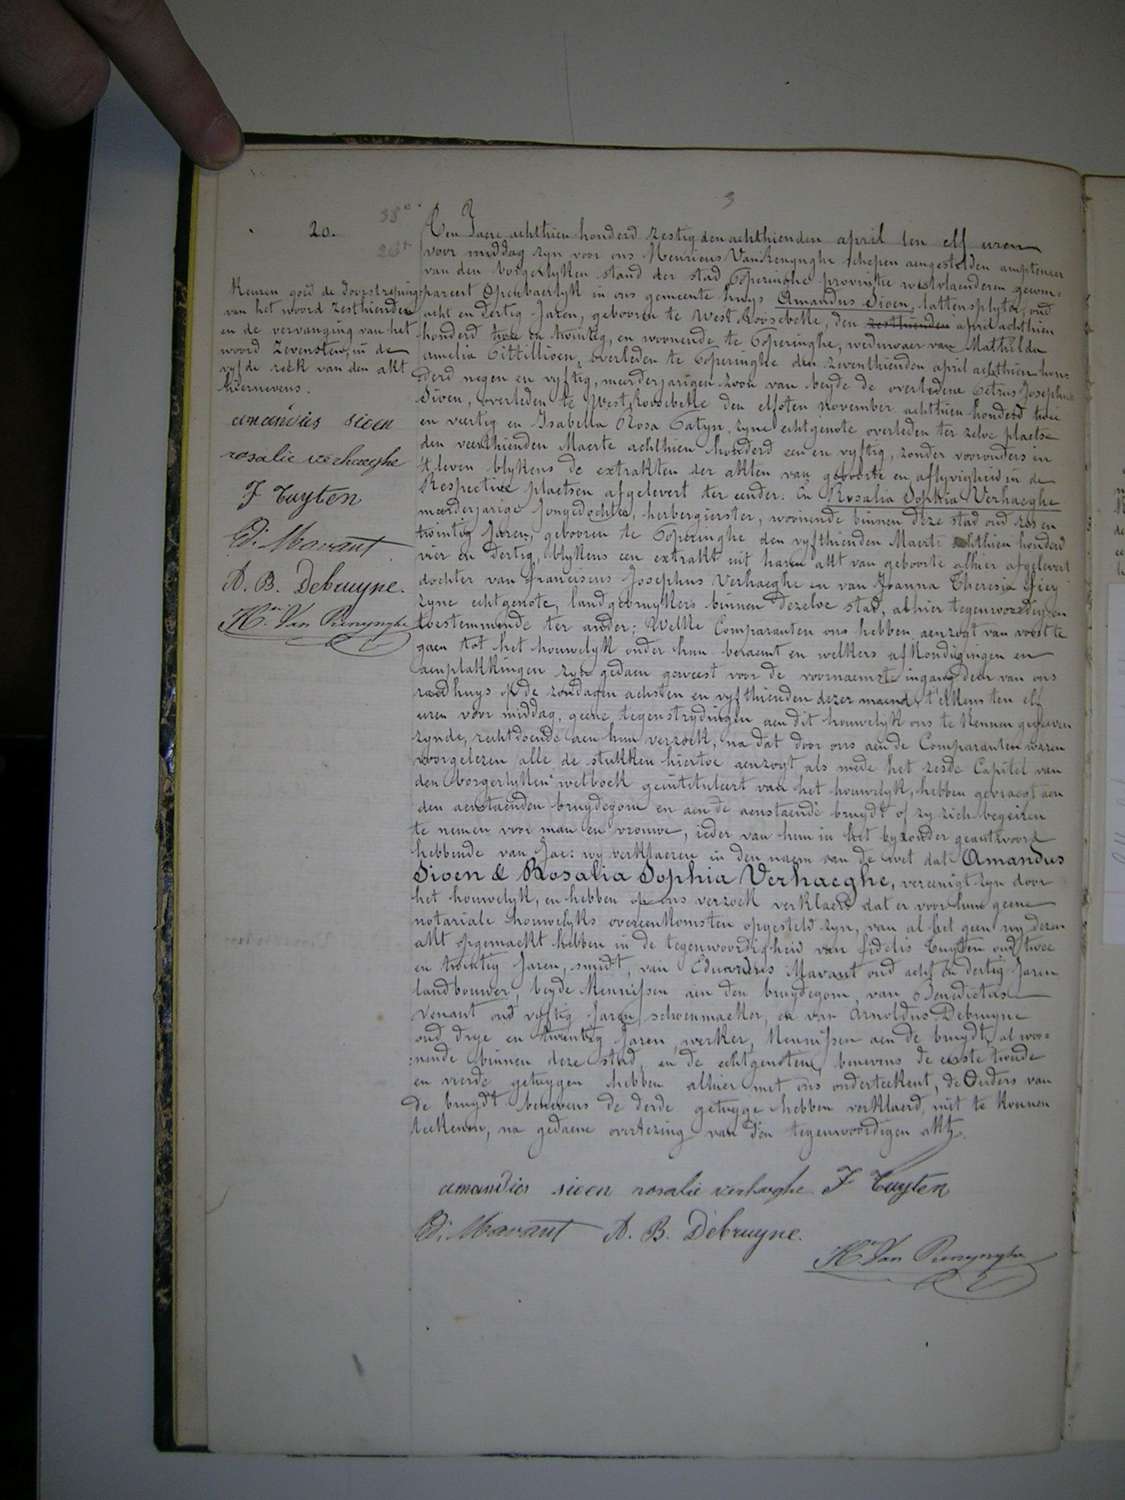 3
38°
20.
Keuren goed de doorstreping
van het woord zesthienden
en de vervanging van het
woord zevensten, in de
vyfde reek van den akt
hiernevens.
amandus sioen
rosalie verhaeghe
F Tuyten
E. Mavaut
A. B. Debruyne.
Hri Van Renynghe
Den Jaere achthien honderd zestig den achthienden april ten elf uren
voor middag zyn voor ons Henricus Van Renynghe schepen aengestelden amptenaer
van den borgerlyken stand der stad Poperinghe provintie westvlaenderen gecom-
pareert Openbaerlyk in ons gemeente huys Amandus Sioen, lattensplyter, oud
acht en dertig Jaren, geboren te West Roosebeke, den zesthienden april achthien
honderd twee en twintig, en woonende te Poperinghe, weduwaer van Mathilda
amelia Pittillioen, overleden te Poperinghe den zeventhienden april achthien hon-
derd negen en vyftig, meerderjarigen zoon van beyde de overledene Petrus Josephus
Sioen, overleden te West Roosebeke den elfsten november achthien honderd twee
en veertig en Isabella Rosa Catyn, zyne echtgenote overleden ter zelve plaetse
den veerthienden Maerte achthien honderd een en vyftig, zonder voorouders in
't leven blykens de extrakten der akten van geboorte en aflyvigheid in de
Respective plaetsen afgelevert ter eender. En Rosalia Sophia Verhaeghe
meerderjarige Jongedochter, herbergierster, woonende binnen deze stad oud zes en
twintig Jaren, geboren te Poperinghe den vyfthienden Maerte achthien honderd
vier en dertig, blykens een extrakt uit haren akt van geboorte alhier afgelevert
dochter van Franciscus Josephus Verhaeghe en van Joanna Theresia
zyne echtgenote, landgebruykers binnen dezelve stad, alhier tegenwoordig en
toestemmende ter ander; Welke Comparanten ons hebben aenzogt van voorts te
gaen tot het houwelyk onder hun beraemt en welkers afkondigingen en
aenplakkingen zyn gedaen geweest voor de voornaemste ingangdeur van ons
raedhuys op de zondagen achsten en vyfthienden dezer maend, t'elkens ten elf
uren voor middag, geene tegenstrydingen aen dit houwelyk ons te kennen gegeven
zynde, rechtdoende aen hun verzoek, na dat door ons aen de Comparanten waren
voorgelezen alle de stukken hiertoe aenzogt als mede het zesde Capitel van
den borgerlyken wetboek geïntituleert van het houwelyk, hebben gevraegt aen
den aenstaenden bruydegom en aen de aenstaende bruydt of zy zich begeiren
te nemen voor man en vrouwe, ieder van hun in het byzonder geantwoord
hebbende van Jae: wy verklaeren in den naem van de wet dat Amandus
Sioen & Rosalia Sophia Verhaeghe, vereenigt zyn door
het houwelyk, en hebben op ons verzoek verklaerd dat er voor hun geene
notariale houwelyks overeenkomsten opgesteld zyn, van al het geen wy dezen
akt opgemaekt hebben in de tegenwoordigheid van fidelis Tuyten oud twee
en twintig Jaren, smidt, van Eduardus Mavaut oud acht en dertig Jaren
landbouwer, beyde Kennissen aen den bruydegom, van Benedictus
Venant oud vyftig Jaren, schoenmaeker, en van Arnoldus Debruyne
oud drye en twintig Jaren, werker, Kennissen aen de bruydt, al woo-
nende binnen deze stad en de echtgenoten benevens de eerste tweede
en vierde getuygen hebben alhier met ons onderteekent, de Ouders van
de bruydt benevens de derde getuyge hebben verklaerd niet te konnen
teekenen, na gedaene overlezing van den tegenwoordigen akt.
amandus sioen rosalie verhaeghe F Tuyten
E. Mavaut A. B. Debruyne.
Hri Van Renynghe